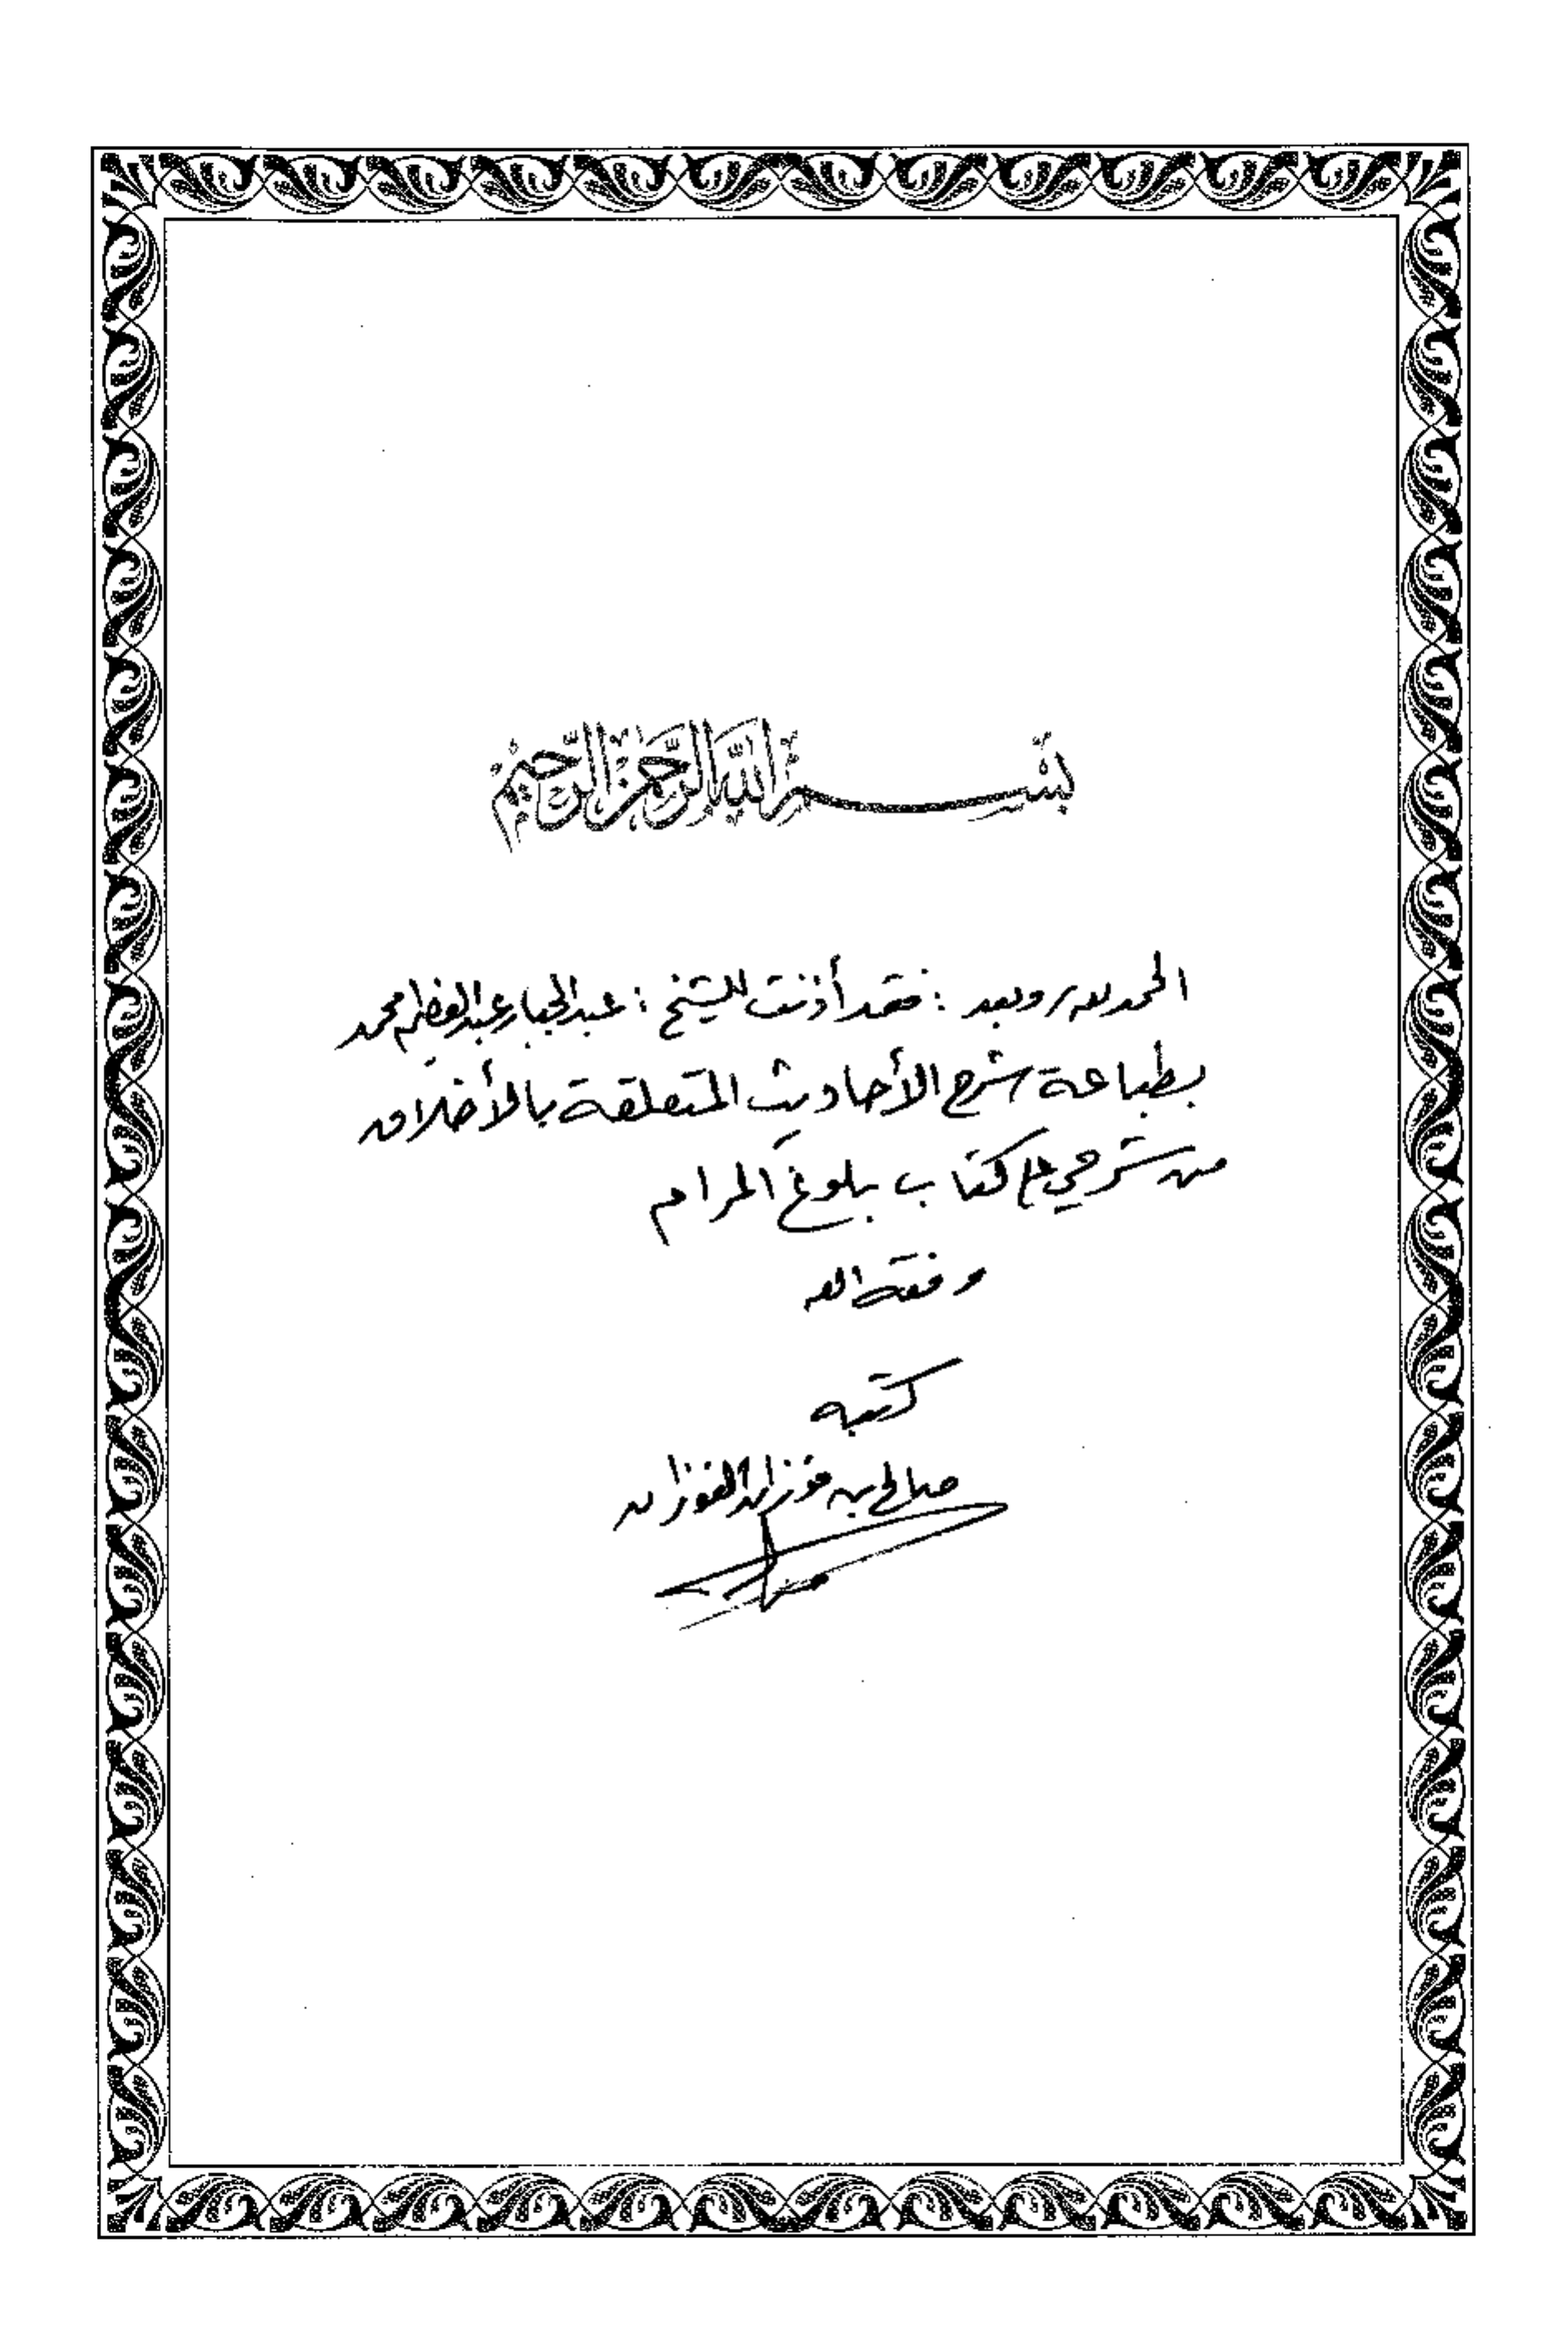 بسم الله الرحمن الرحيم
الحمد لله وبعد : فقد أذنت للشيخ : عبد الجبار عبد العظيم محمد
بطباعة شرح الأحاديث المتعلقة بالأخلاق
من شرحي على كتاب بلوغ المرام
وفقه الله
كتبه
صالح بن فوزان الفوزان